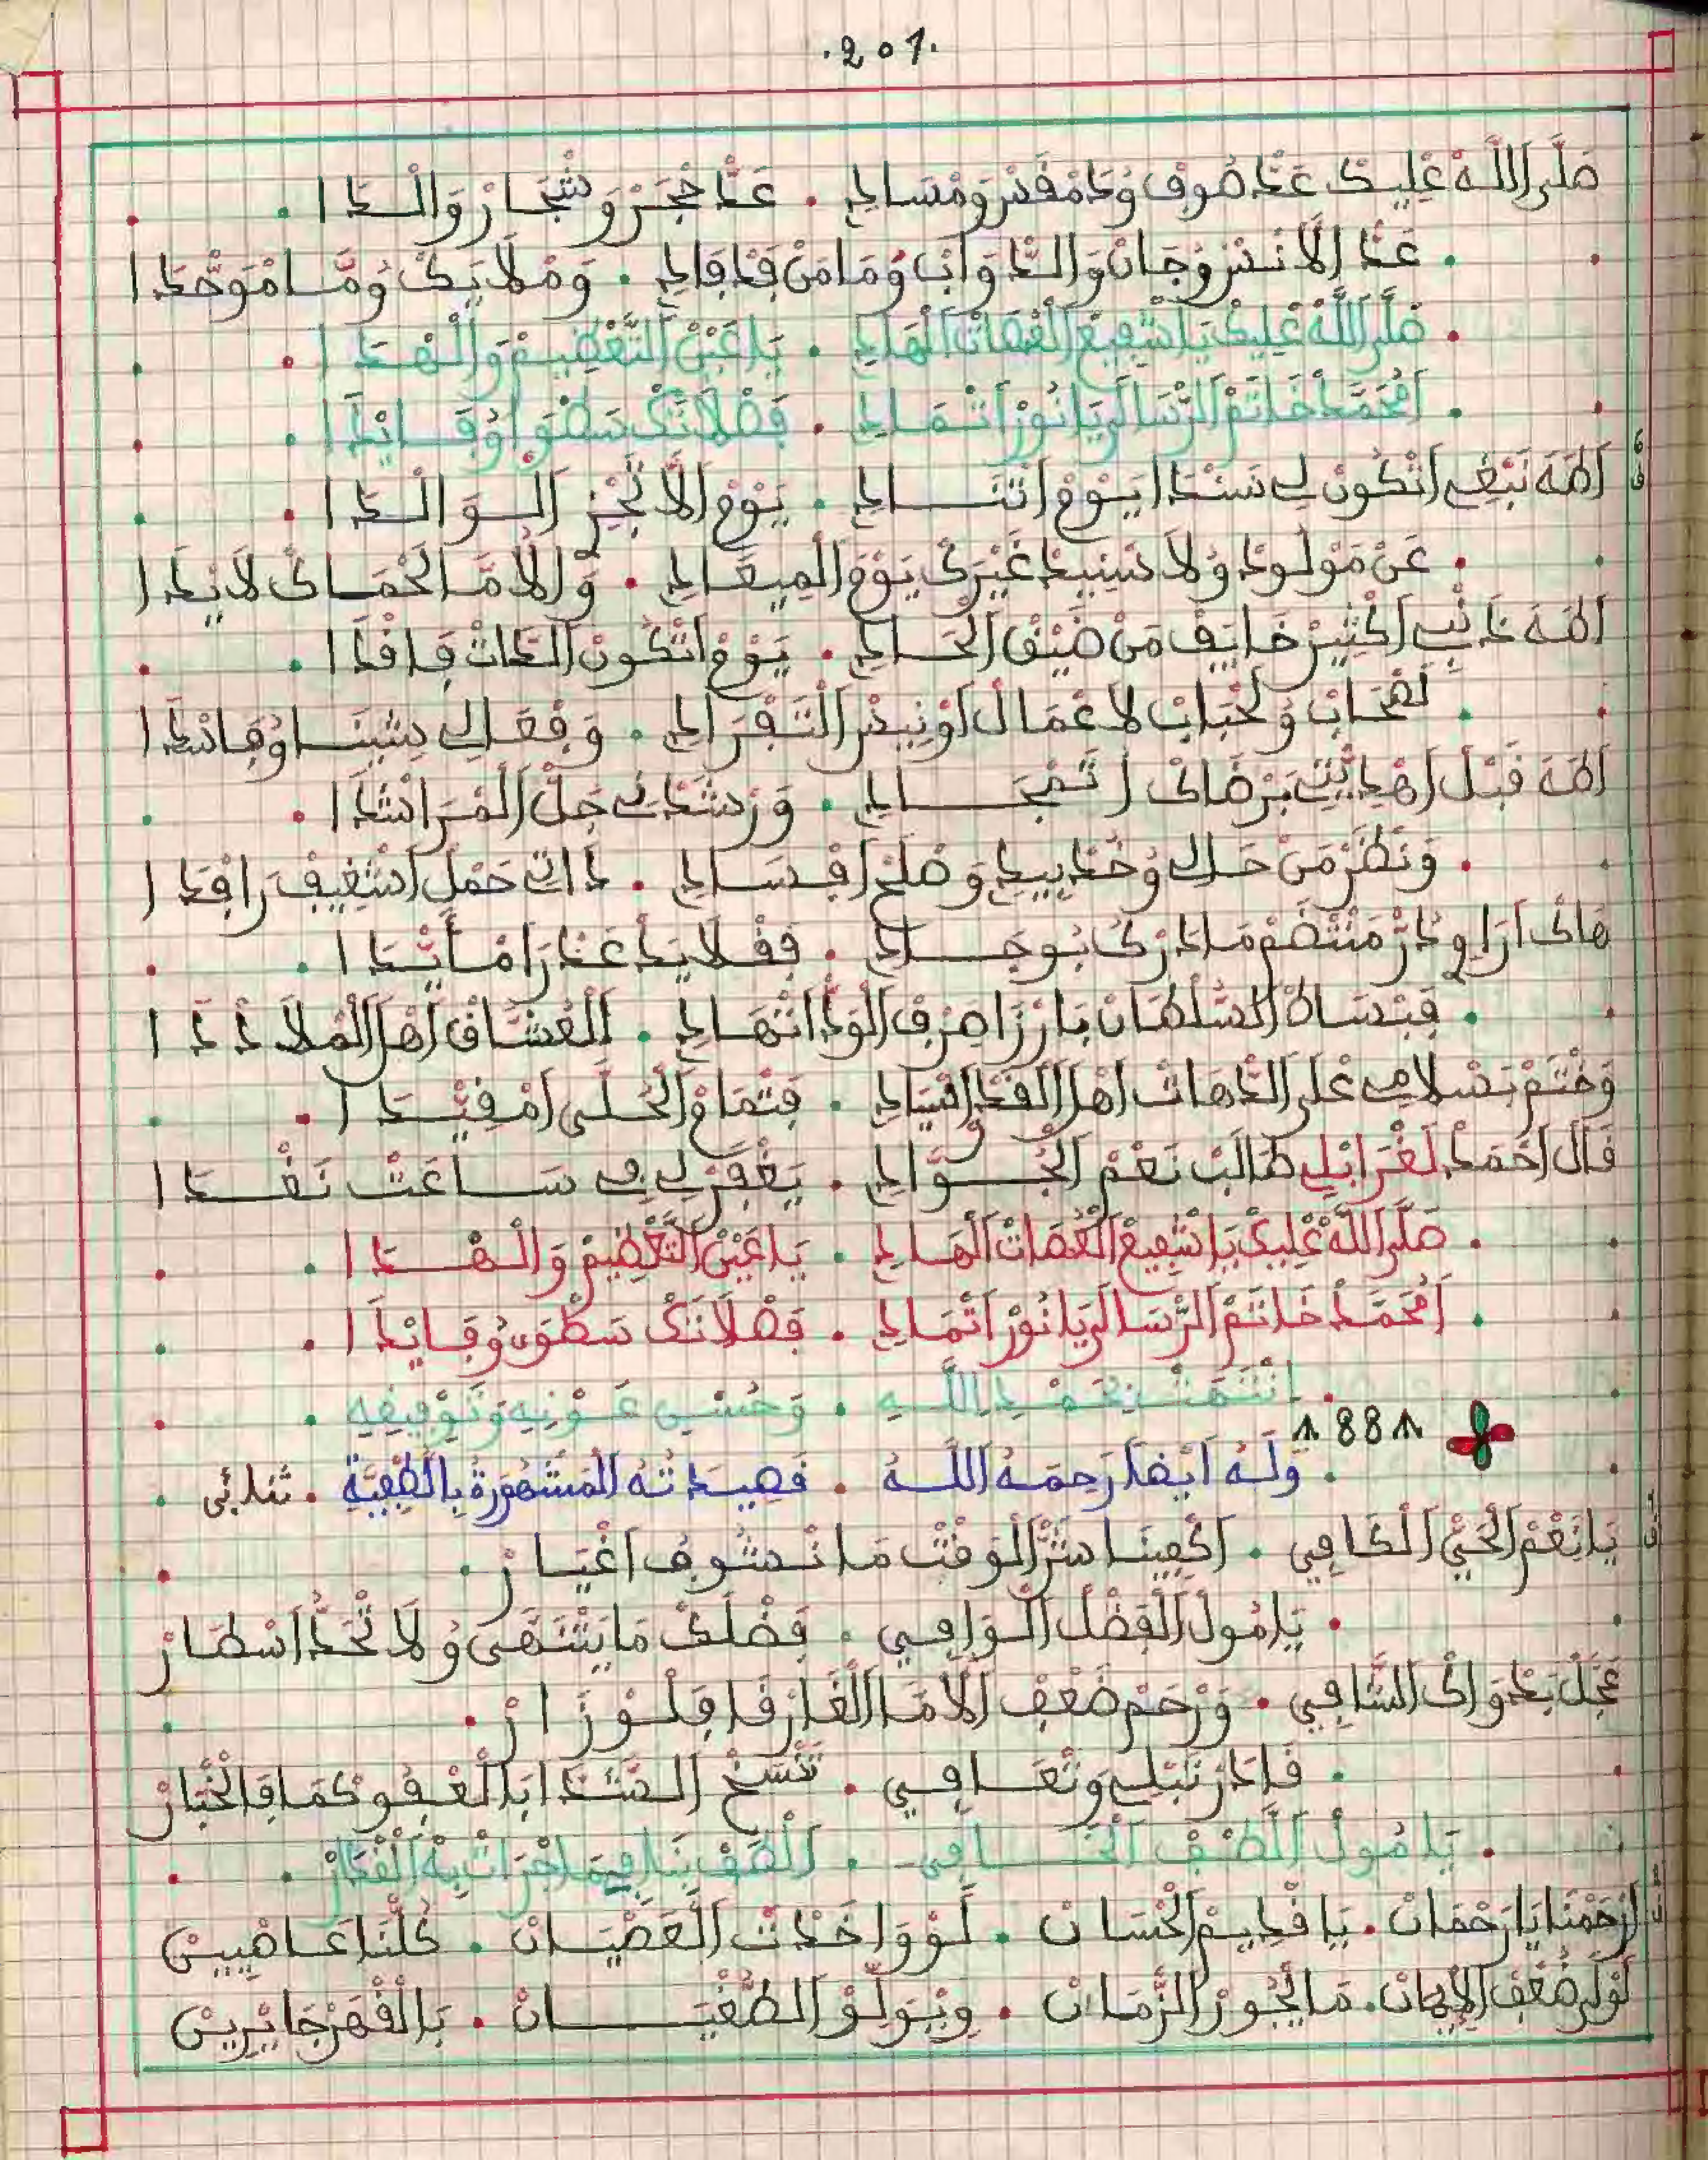 .207.
صَلَّى اللَّهْ عْلِيكْ عَدّ صُوفْ وُدَمْقَسْ وَمْسَادِ . عَدّ حْجَرْ وَشْجَارْ وَالْدَا .
. عَدّ الَانَسْ وُجَانْ وَالدّْوَابْ وُمَا مَنْ فَدْفَادِ . وَمْلَايَكْ وُمَّا مْوَحْدَا
. صَلَّى اللَّهْ عْلِيكْ يَا شْفِيعْ الْعُصَاتْ الْهَادِ . يَا عَيْنْ التَّعْظِيمْ وَالْهْدَا .
. امْحَمَّدْ خَاتَمْ الرّْسَالَى يَا نُورْ اتْمَادِ . فَضْلَاتَكْ سَطْوَا وُفَايْدَا .
اطَهَ نَبْغِ اتْكُونْ لِي سَنْدَا يَوْمْ اتْنَادِ . يَوْمْ الَا تَجْزِ الْوَالْدَا .
. عَنْ مَوْلُودْ وُلَا سْنِيدْ غَيْرَكْ يَوْمْ الْمِيعَادِ . وَالَامَّا لَحْمَاكْ لَايْدَا
اطَهَ دَنْبِ اكْثِيرْ خَايَفْ مَنْ ضَيْقْ الْحَادِ . يَوْمْ اتْكُونْ الدَّاتْ فَاقْدَا .
. لَصْحَابْ وَلَحْبَابْ لَاعْمَالْ اوْنِيسْ التَّفْرَادِ . وَفْعَالِي شِينَا وُفَاسْدَا
اطَهَ قَبْلْ اهْدِيّْتِي بَرْضَاكْ اتْمْجَادِ . وَرْشَدْنِي جَلّْ الْمْرَاشْدَا .
. وَنْظَرْ مَنْ حَالِي وُخُدْ بِيدِ وَصْلَحْ افْسَادِ . دَاتِي حَمْلْ اشْغِيفْ رَافْدَا
هَاكْ ارَاوِ دُرّْ مَنْتْظَمْ مَادَرْكُ بُوجَادِ . فَقْلَايَدْ عَدْرَا مْأَيْدَا .
. فَبْسَاطْ السَّلْطَانْ بَارْزَا صَرْفْ الْوَدّْ انْهَادِ . الْعُشَّاقْ اهْلْ الْمْلَادْدَا
وُخْتَمْ بَسْلَامِي عْلَى الدّْهَاتْ اهْلْ الْفَدّْ اسْيَادِ . فَتْمَامْ الْحُلَّى امْفِيْدَا .
قَالْ احْمَدْ لَغْرَابْلِي طَالَبْ نَعْمْ الْجْوَّادِ . يَغْفَرْ لِي فِي سَاعَتْ نَفْدَا
. صَلَّى اللَّهْ عْلِيكْ يَا شْفِيعْ الْعُصَاتْ الْهَادِ . يَا عَيْنْ التَّعْظِيمْ وَالْهْدَا .
. امْحَمَّدْ خَاتَمْ الرّْسَالَى يَا نُورْ اتْمَادِ . فَضْلَاتَكْ سَطْوَى وُفَايْدَا .
. انْتَهَتْ بِحَمْدِ اللَّهِ . وَحُسْنِ عَوْنِهِ وَتَوْفِيقِهِ .
٨ 88 ٨
. وَلَهُ أَيْضاً رَحِمَهُ اللَّهُ . قَصِيدَتُهُ الْمَشْهُورَةُ بِاللُّطْفِيَّة . ثلاثي .
يَا نَعْمْ الْحَيّْ الْكَافِي . اكْفِينَا شَرّْ الْوَقْتْ مَا نْشُوفْ اغْيَارْ .
. يَا مُولْ الْفَضْلْ الْوَافِي . فَضْلَكْ مَا يَنْتْهَى وُلَا تْحَدّْ اسْطَارْ
عَجَّلْ بَدْوَاكْ الشَّافِي . وَرْحَمْ ضَعْفْ الَامَا الْغَارْقَا فَلْوْزَارْ .
. قَادَرْ تَبْلِي وَتْعَافِي . تَنْسَخْ الشَّدَّا بَالْعْفُو كَمَا فَالْخْبَارْ
. يَا مُولْ اللُّطْفْ الْخَافِي . الْطَفْ بِنَا فِيمَا جْرَاتْ بِهْ الْقْدَارْ .
ارْحَمْنَا يَا رَحْمَانْ . يَا قْدِيمْ الْحْسَانْ . لَوْ وَاخَدْتْ الْعَصْيَانْ . كُلّْنَا عَاصْيِينْ
لَوْلَى ضُعْفْ الْإِيمَانْ . مَا يْجُورْ الزّْمَانْ . وِيْوَلِّوْ الطُّغْيَانْ . بَالْقْهَرْ جَايْرِينْ